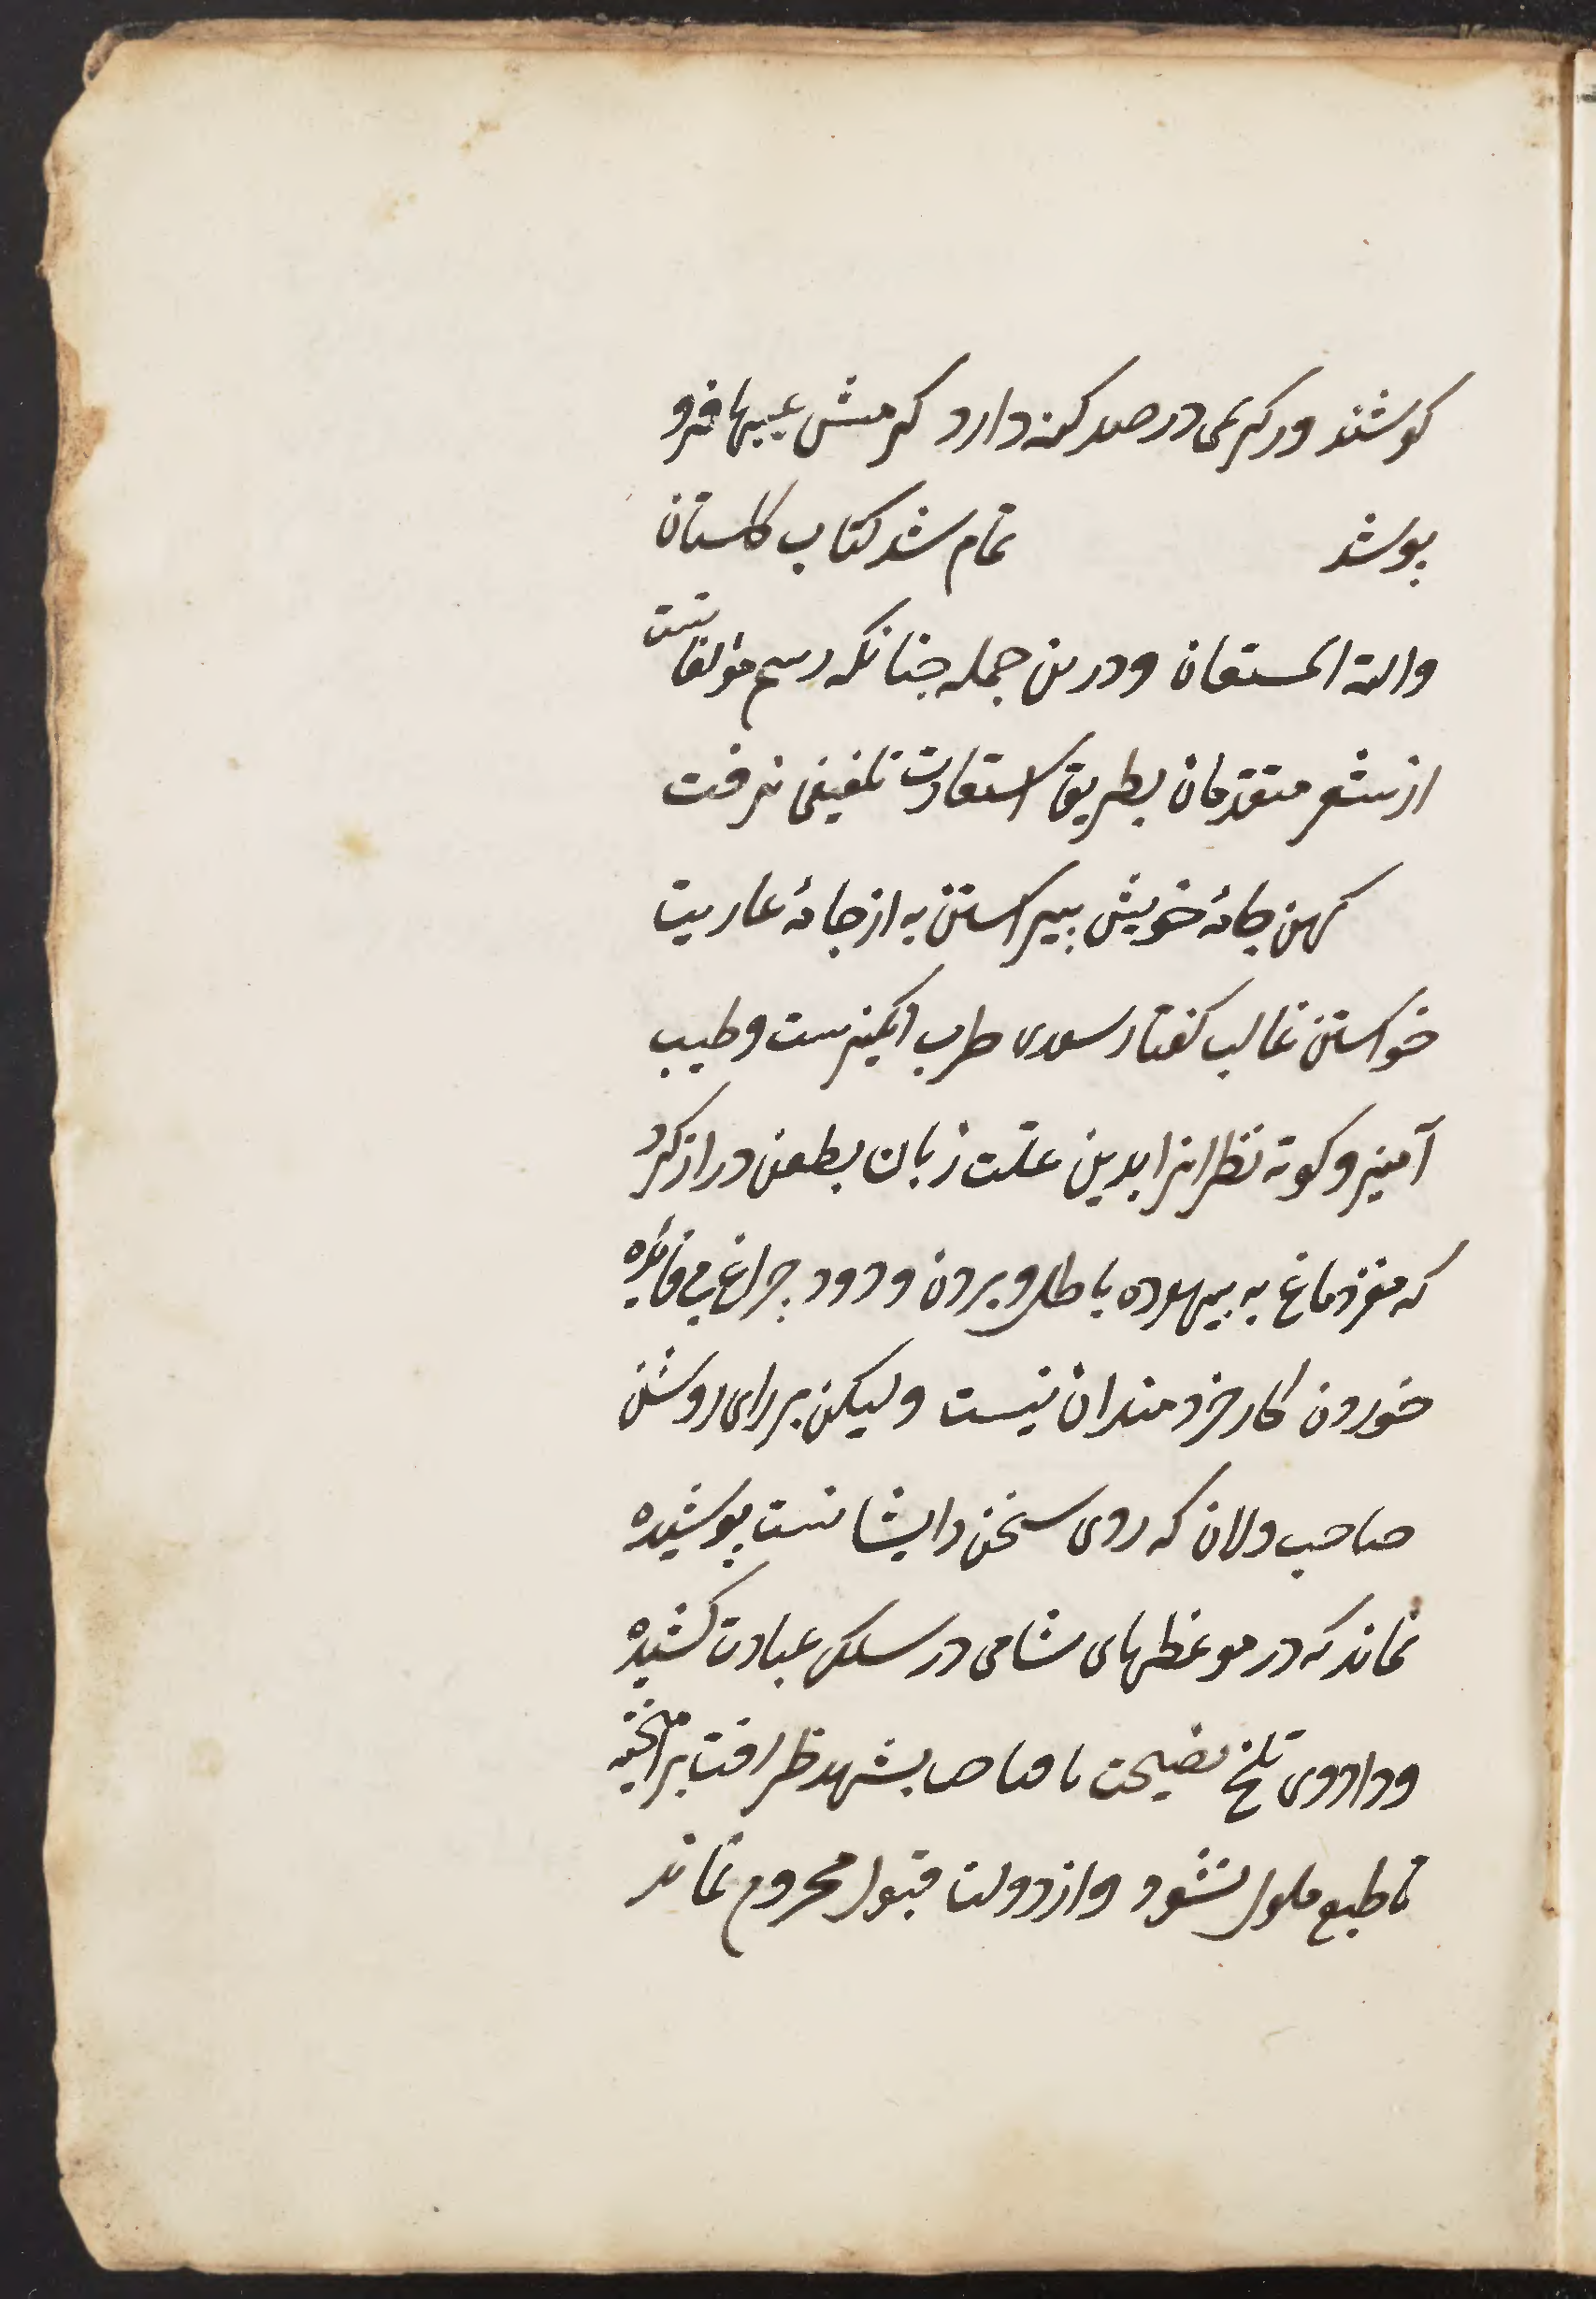 کوشند ور کریمی دو صد کنه دارد کرمش عیبها فرو
پوشد تمام شد کتاب کلستان
والله المستعان و درین جمله چنانکه رسم مؤلفانست
از شعر متقدمان بطریق استعارت تلفیقی نرفت
کهن جامهٔ خویش پیراستن به از جامهٔ عاریت
خواستن غالب کفتار سعدی طرب انکیزست و طیبت
آمیز و کوته نظرانرا بدین علّت زبان بطعن دراز کردد
که مغز دماغ به بیهوده باطل و بردن و دود چراغ بی فایده
خوردن کار خردمندان نیست ولیکن بر رای روشن
صاحب دلان که روی سخن در ایشانست پوشیده
نماند که در موعظهای شافی در سلک عبارت کشیده
و داروی تلخ نصیحت بشهد ظرافت برامیخته
تا طبع ملول نشود و از دولت قبول محروم نماند